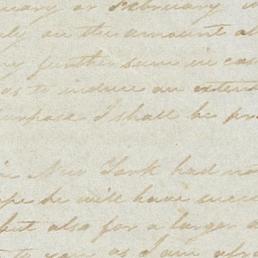 uary or February
ly on the amount al
ny further sum in cas
as to induce an exten
urpose I shall be pr
in New York had no
ope he will have succe
but also for a larger a
to you as I am afra